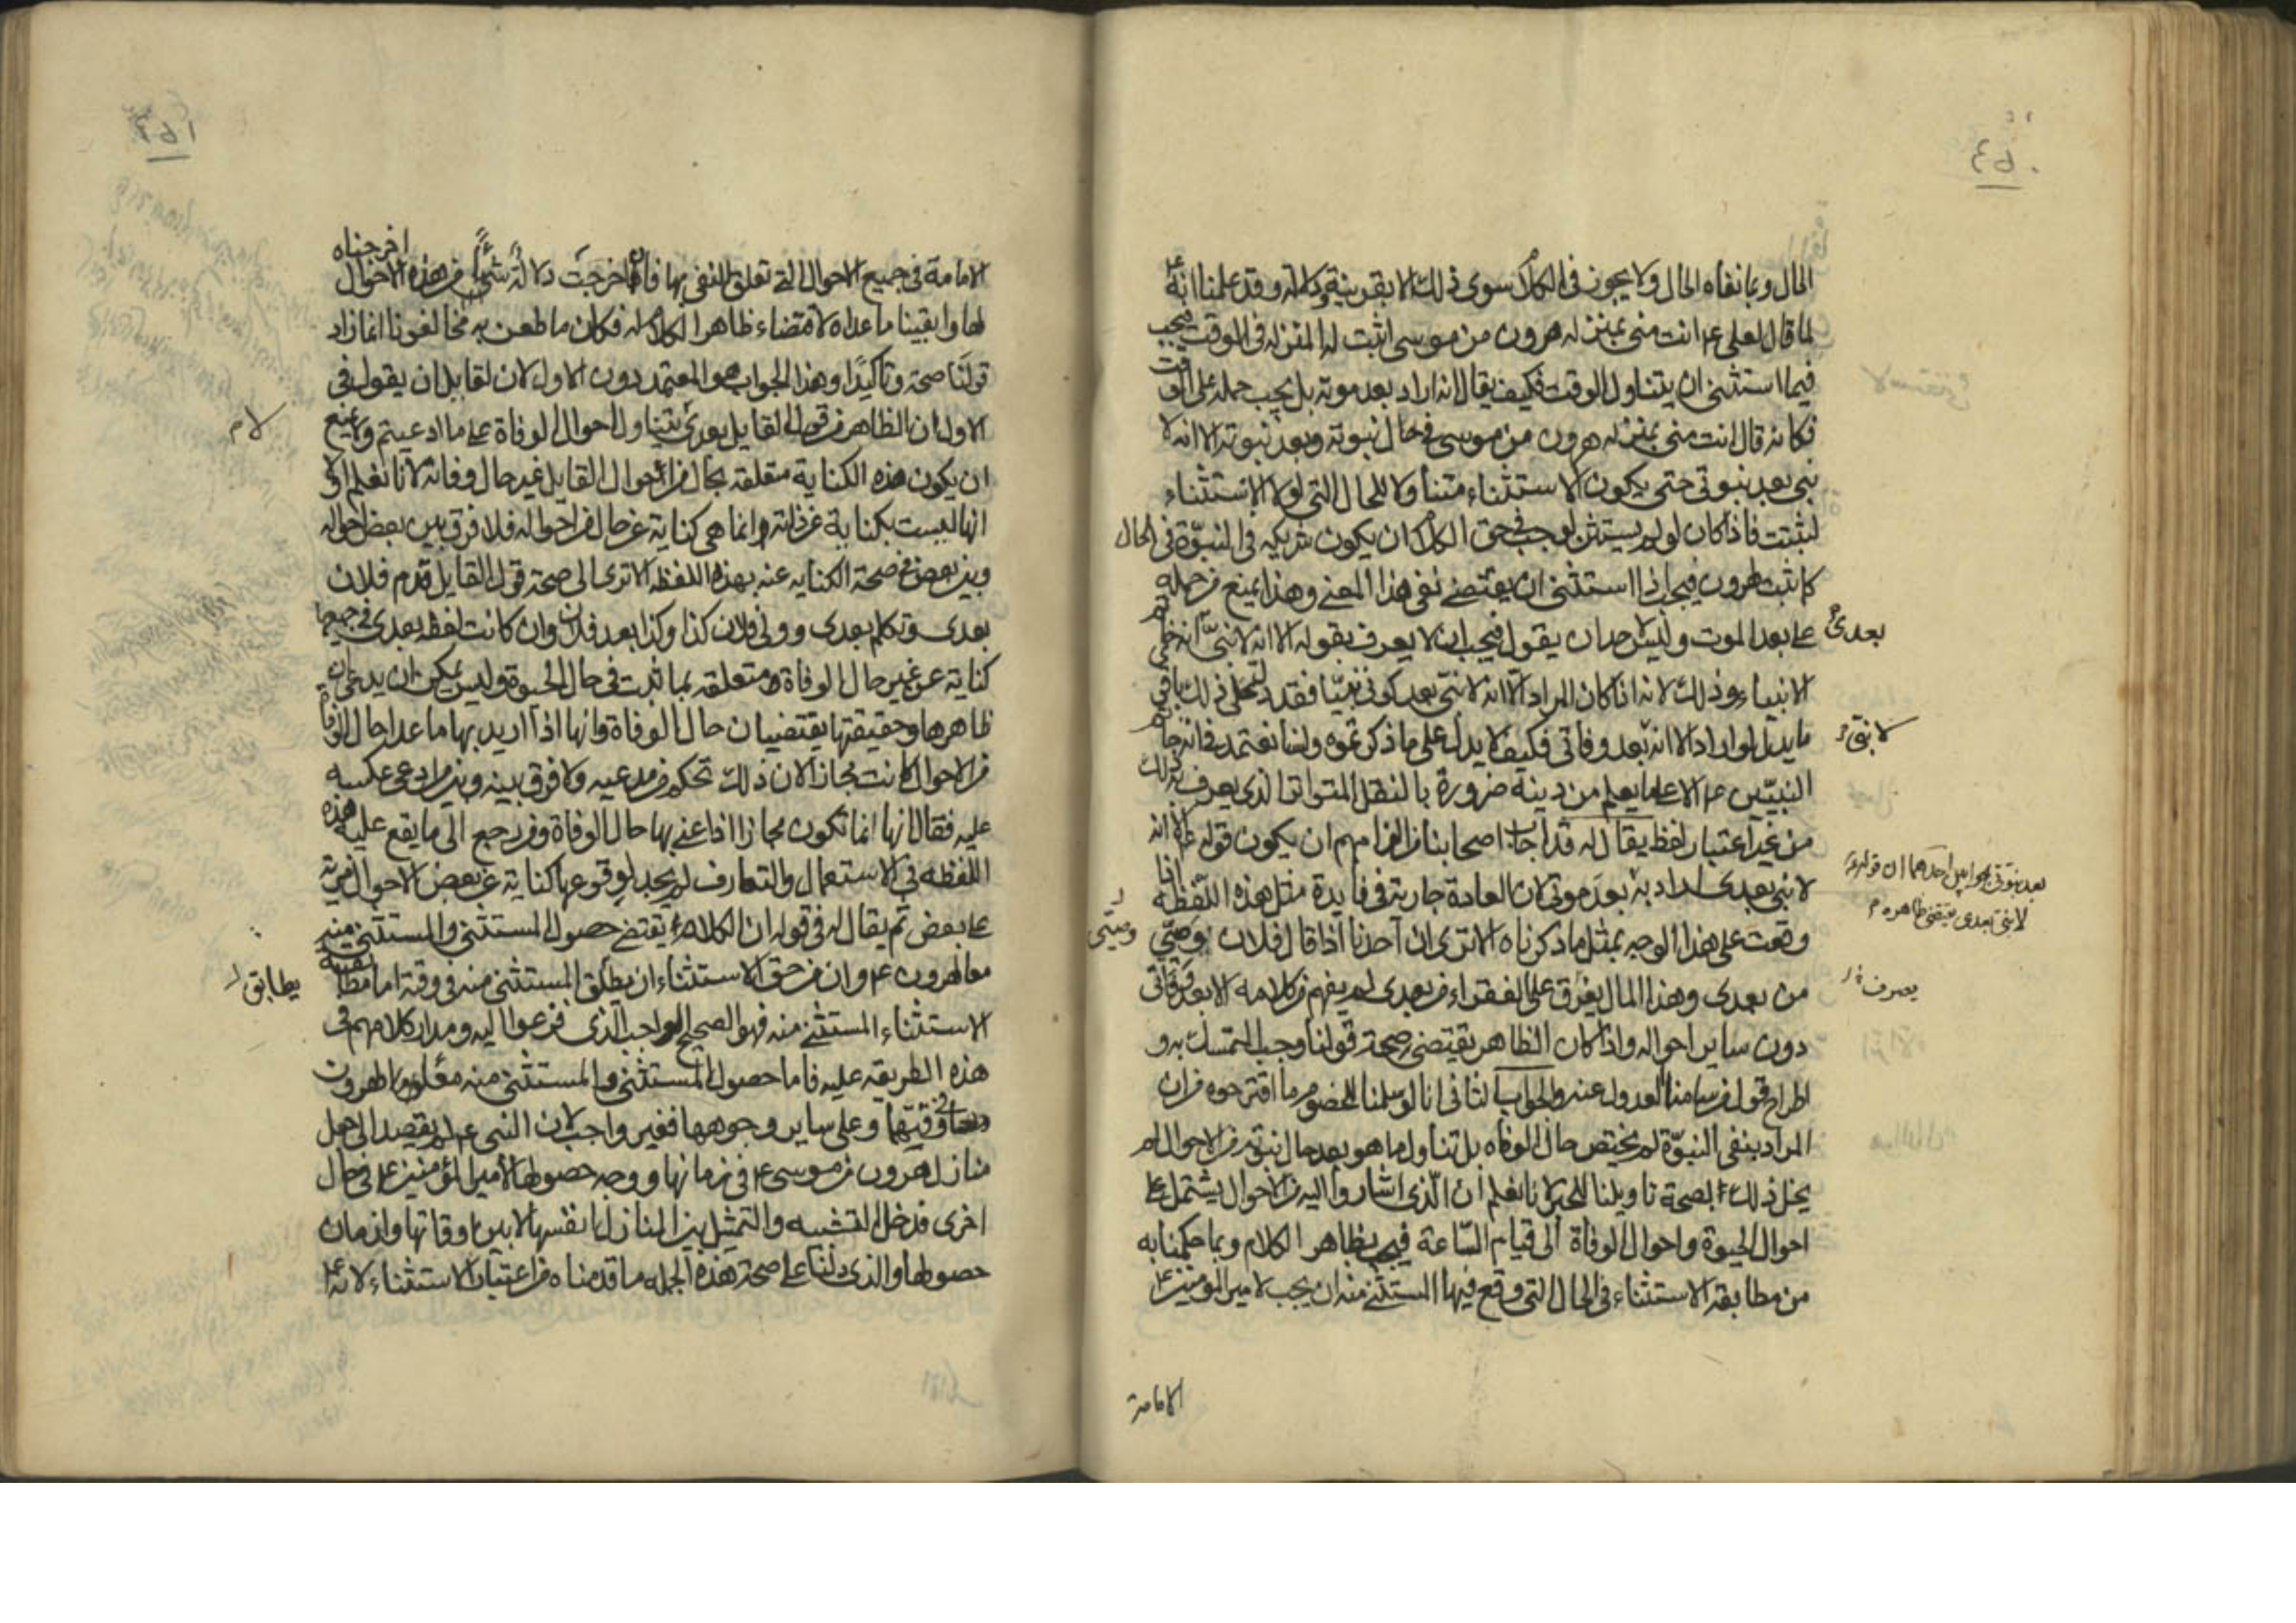 الحال وبما نفاه الحال ولا يجوز في الكلام سوى ذلك الا بقرينة ودلالة وقد علمنا انه ع
لما قال لعلى ع انت منى بمنزلة هرون من موسى اثبت له المنزلة في الوقت فيجب
فيما استثنى ان يتناول الوقت فكيف يقال انه اراد بعد موته بل يجب حمله على الوقت
فكانه قال انت منى بمنزلة هرون من موسى في حال نبوته وبعد نبوته الا انه لا
نبى بعد نبوتى حتى يكون الاستثناء متناولا للحال التى لولا الاستثناء
لثبتت فاذا كان لو لم يستثن لوجب في حق الكلام ان يكون شريكه في النبوة في الحال
كما ثبت لهرون فيجب اذا استثنى ان يقتضى نفى هذا المعنى وهذا يمنع من حمله
بعدى
على بعد الموت وليس لاحد ان يقول فيجب ان لا يعرف بقوله الا انه لا نبى انه خاتم
الانبياء وذلك لانه اذا كان المراد الا انه لا نبى بعد كونى نبيا فقد دخل في ذلك
لا نبى
ما يدل لو اراد الا انه بعد وفاتى فكيف لا يدل على ما ذكرتموه ولسنا نعتمد في انه خاتم
النبيين ع الا على ما يعلم من دينه ضرورة بالنقل المتواتر الذى يعرف به ذلك
من غير اعتبار لفظ يقال له قد اجاب اصحابنا
بعد نبوتى بجوابين احدهما ان قوله
لا نبى بعدى يقتضى ظاهره
لا نبى بعدى اراد به بعد موتى لان العادة جارية في فايدة مثل هذه اللفظة اذا
وقعت على هذا الوجه بمثل ما ذكرناه الا ترى ان احدنا اذا قال فلان وصيى
وصيتى
يصرف
من بعدى وهذا المال يفرق على الفقراء من بعدى لم يفهم من كلامه الا بعد وفاتى
دون ساير احواله واذا كان الظاهر يقتضى صحة قولنا وجب التمسك به و
اطراح قول من سامنا العدول عنه والجواب الثانى انا لو سلمنا للخصوم ما اقترحوه من ان
المراد بنفى النبوة لم يختص حال الوفاة بل تناول ما هو بعد حال نبوته من الاحوال لم
يخل ذلك بصحة تاويلنا للخبر لانا نعلم ان الذى اشاروا اليه من الاحوال يشتمل على
احوال الحيوة واحوال الوفاة الى قيام الساعة فيجب بظاهر الكلام وبما حكمنا به
من مطابقة الاستثناء في الحال التى وقع فيها المستثنى منه ان يجب لامير المومنين ع
الامامة
الامامة في جميع الاحوال التى تعلق النفى بها فان اخرجت دلالة شيئا من هذه الاحوال اخرجناه
لها وابقينا ما عداه لاقتضاء ظاهر الكلام له فكان ما طعن به مخالفونا انما زاد
قولنا صحة وتاكيدا وهذا الجواب هو المعتمد دون الاول لان لقايل ان يقول في
الاول ان الظاهر من قول القايل بعدى يتناول احوال الوفاة على ما ادعيتم ولا يمنع
لام
ان يكون هذه الكناية متعلقة بحال من احوال القايل غير حال وفاته لانا نعلم اولا
انها ليست بكناية عن ذاته وانما هى كناية عن حال من احواله فلا فرق بين بعض احواله
وبين بعض في صحة الكناية عنه بهذه اللفظة الا ترى الى صحة قول القايل قدم فلان
بعدى وتكلم بعدى وولى فلان كذا وكذا بعد فلان وان كانت لفظة بعدى في جميعها
كناية عن غير حال الوفاة ومتعلقة بما ثبت في حال الحيوة وليس يمكن ان يدعى ان
ظاهرها وحقيقتها يقتضيان حال الوفاة وانها اذا اريد بها ما عدا حال الوفاة
من الاحوال كانت مجازا لان ذلك تحكم من مدعيه ولا فرق بينه وبين من ادعى عكسه
عليه فقال انها انما تكون مجازا اذا عنى بها حال الوفاة ومن رجع الى ما يقع عليه هذه
اللفظة في الاستعمال والتعارف لم يجد لوقوعها كناية عن بعض الاحوال مزية
على بعض ثم يقال له في قوله ان الكلام يقتضى حصول المستثنى والمستثنى منه
معا لهرون ع وان من حق الاستثناء ان يطلق المستثنى منه في وقته اما مطابقة
يطابق
الاستثناء المستثنى منه فهو الصحيح الواجب الذى فزعوا اليه ومدار كلامهم في
هذه الطريقة عليه فاما حصول المستثنى والمستثنى منه معا لهرون
في وقتيهما وعلى ساير وجوهها فغير واجب لان النبى ع لم يقصد الى جعل
منازل هرون من موسى ع في زمانها ووجه حصولها لامير المؤمنين ع في حال
اخرى فدخل التشبيه والتمثيل بين المنازل انفسها لا بين اوقاتها وازمان
حصولها والذى دلنا على صحة هذه الجملة ما قدمناه من اعتبار الاستثناء لانه ع